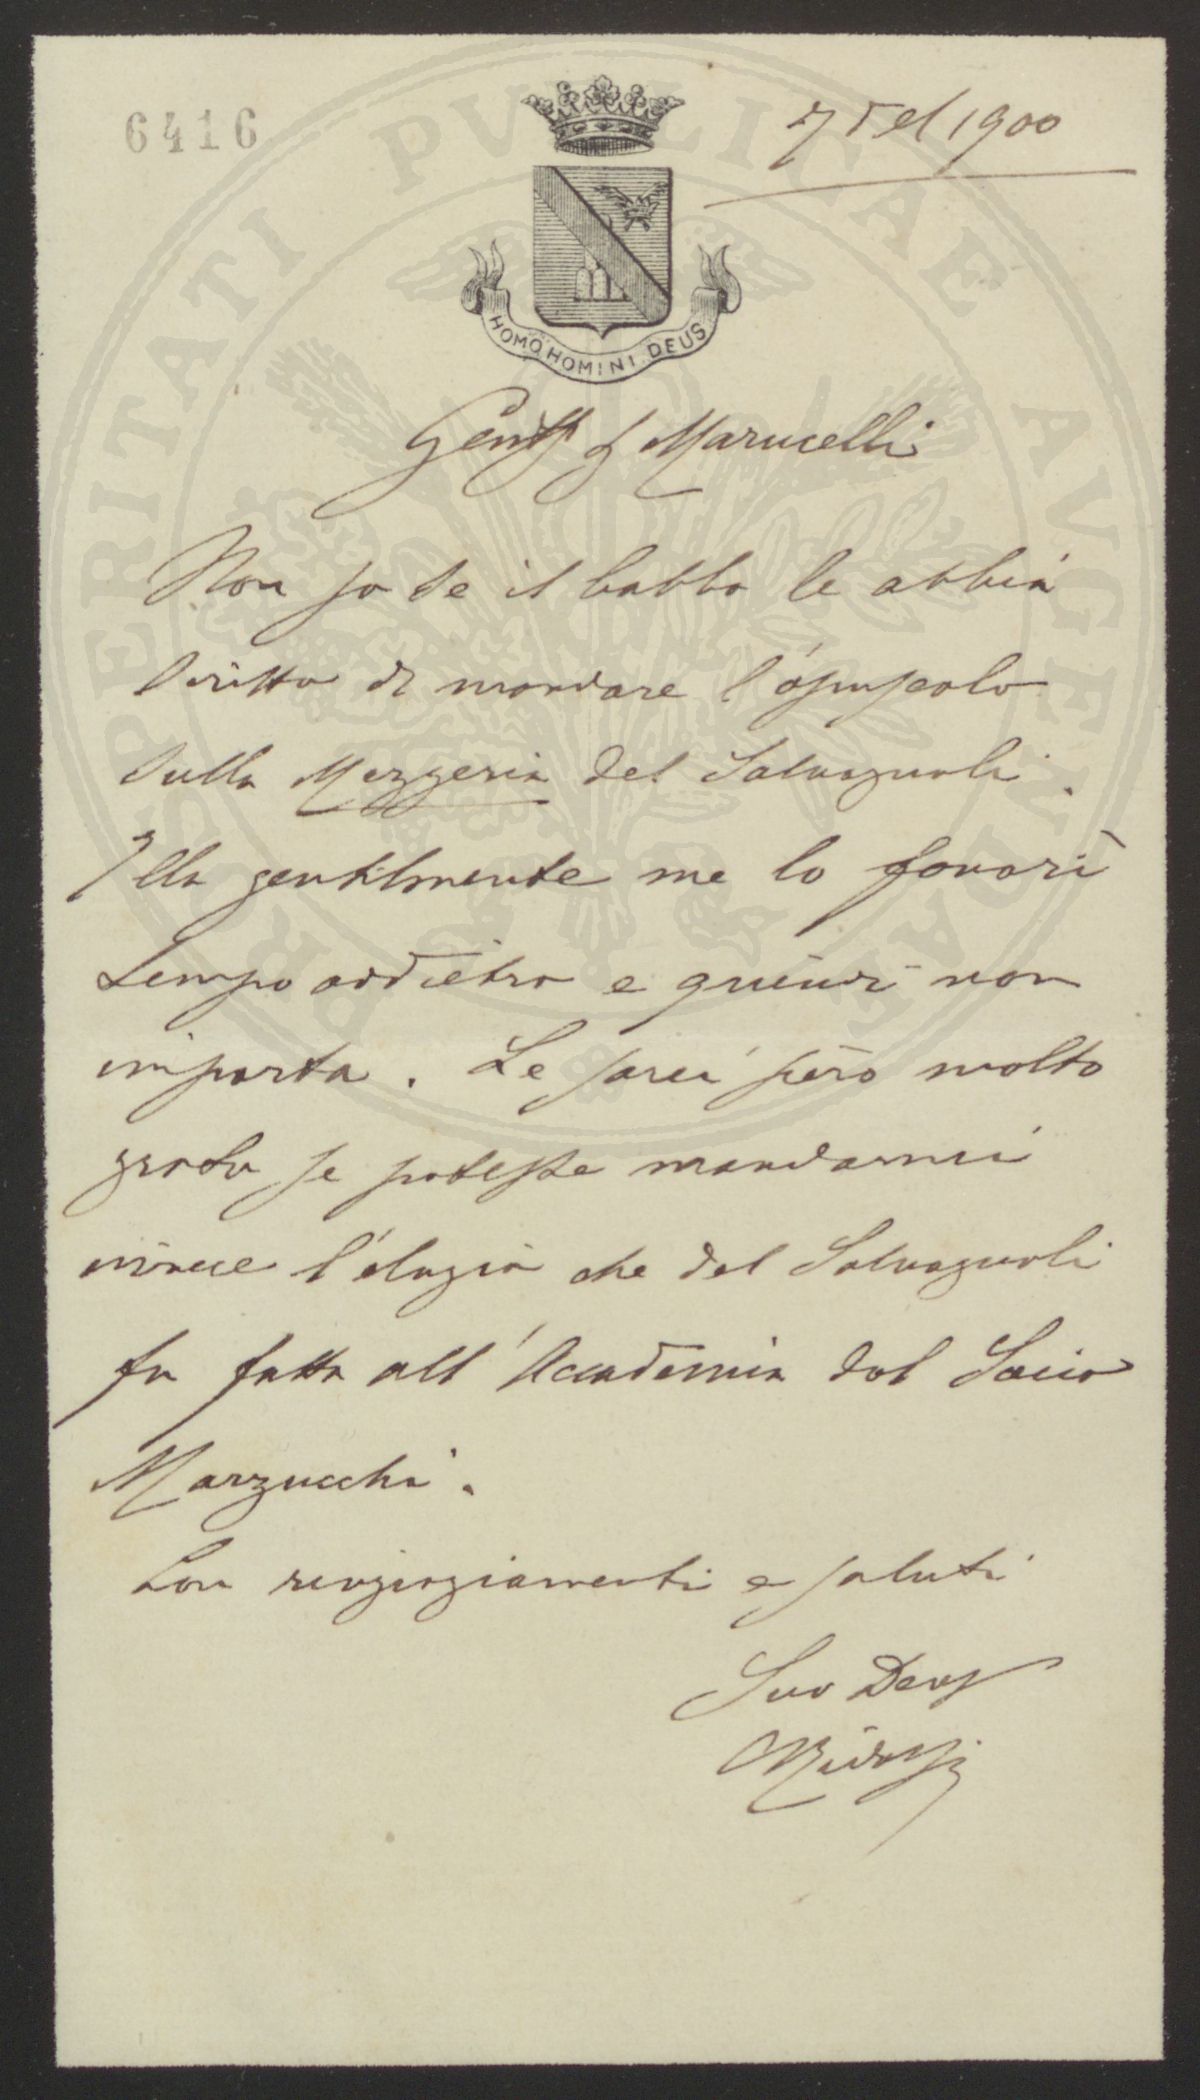 6416
7 Del 1900
HOMO HOMINI DEUS
PROSPERITATI PVBLICAE AVGENDAE
Gent S Marucelli
Non so se il babbo le abbia
scritto di mandare l'opuscolo
sulla Mezzeria del Salvagnoli.
Ella gentilmente me lo favorì
tempo addietro e quindi non
importa. Le sarei però molto
grato se potesse mandarmi
invece l'elogio che del Salvagnoli
fu fatto all'Accademia dal Socio
Marzucchi.
Con ringraziamenti e saluti
Suo Dev